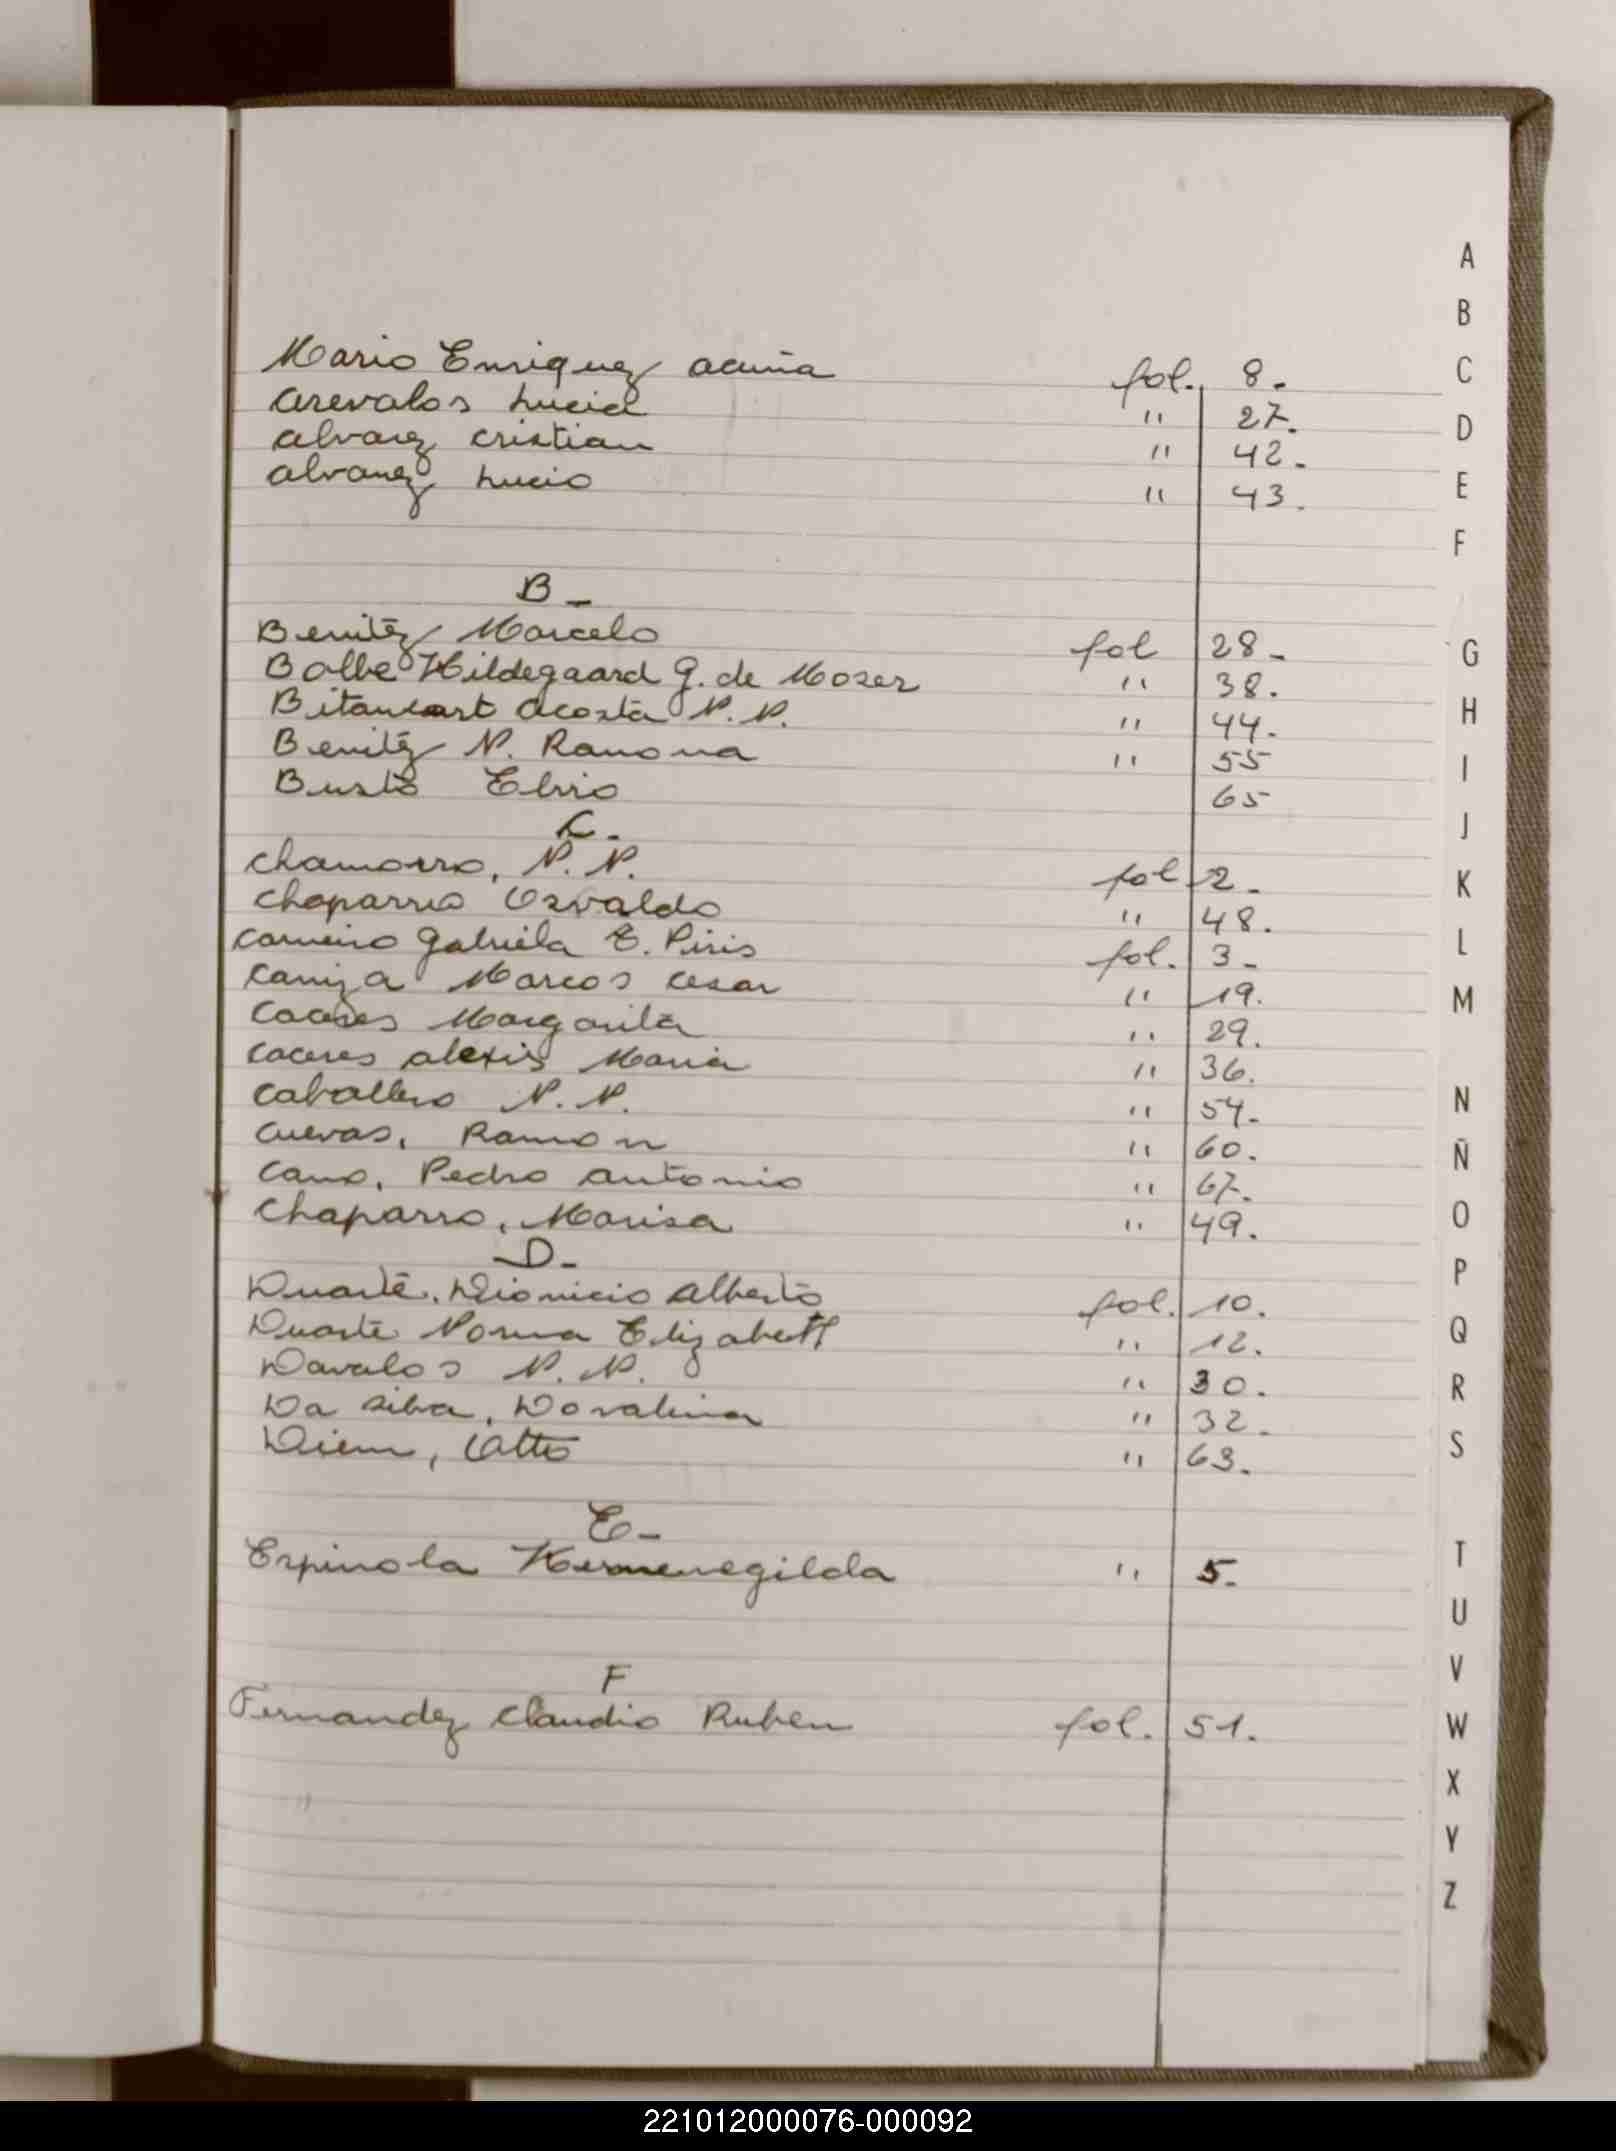 Mario Enriquez acuña fol. 8.
arevalos Lucia " 27.
alvarez cristian " 42.
alvarez Lucio " 43.
B -
Benitez Marcelo fol 28 -
Bolbe Hildegaard G. de Moser " 38.
Bitancort acosta N. N. " 44.
Benitez N. Ramona " 55
Busto Elvio 65
C.
chamorro, N. N. fol 2 -
chaparro Osvaldo " 48.
carneiro Gabriela E. Piris fol. 3 -
caniza Marcos cesar " 19.
caceres Margarita " 29.
caceres alexis Maria " 36.
caballero N. N. " 54.
cuevas, Ramon " 60.
cano, Pedro antonio " 67.
chaparro, Marisa " 49.
D -
Duarte, Dionicio Alberto fol. 10.
Duarte Norma Elizabeth " 12.
Davalos N. N. " 30.
Da silva, Dovalina " 32.
Diem, Otto " 63.
E -
Espinola Hermenegilda " 5.
F
Fernandez Claudio Ruben fol. 51.
A
B
C
D
E
F
G
H
I
J
K
L
M
N
Ñ
O
P
Q
R
S
T
U
V
W
X
Y
Z
221012000076-000092